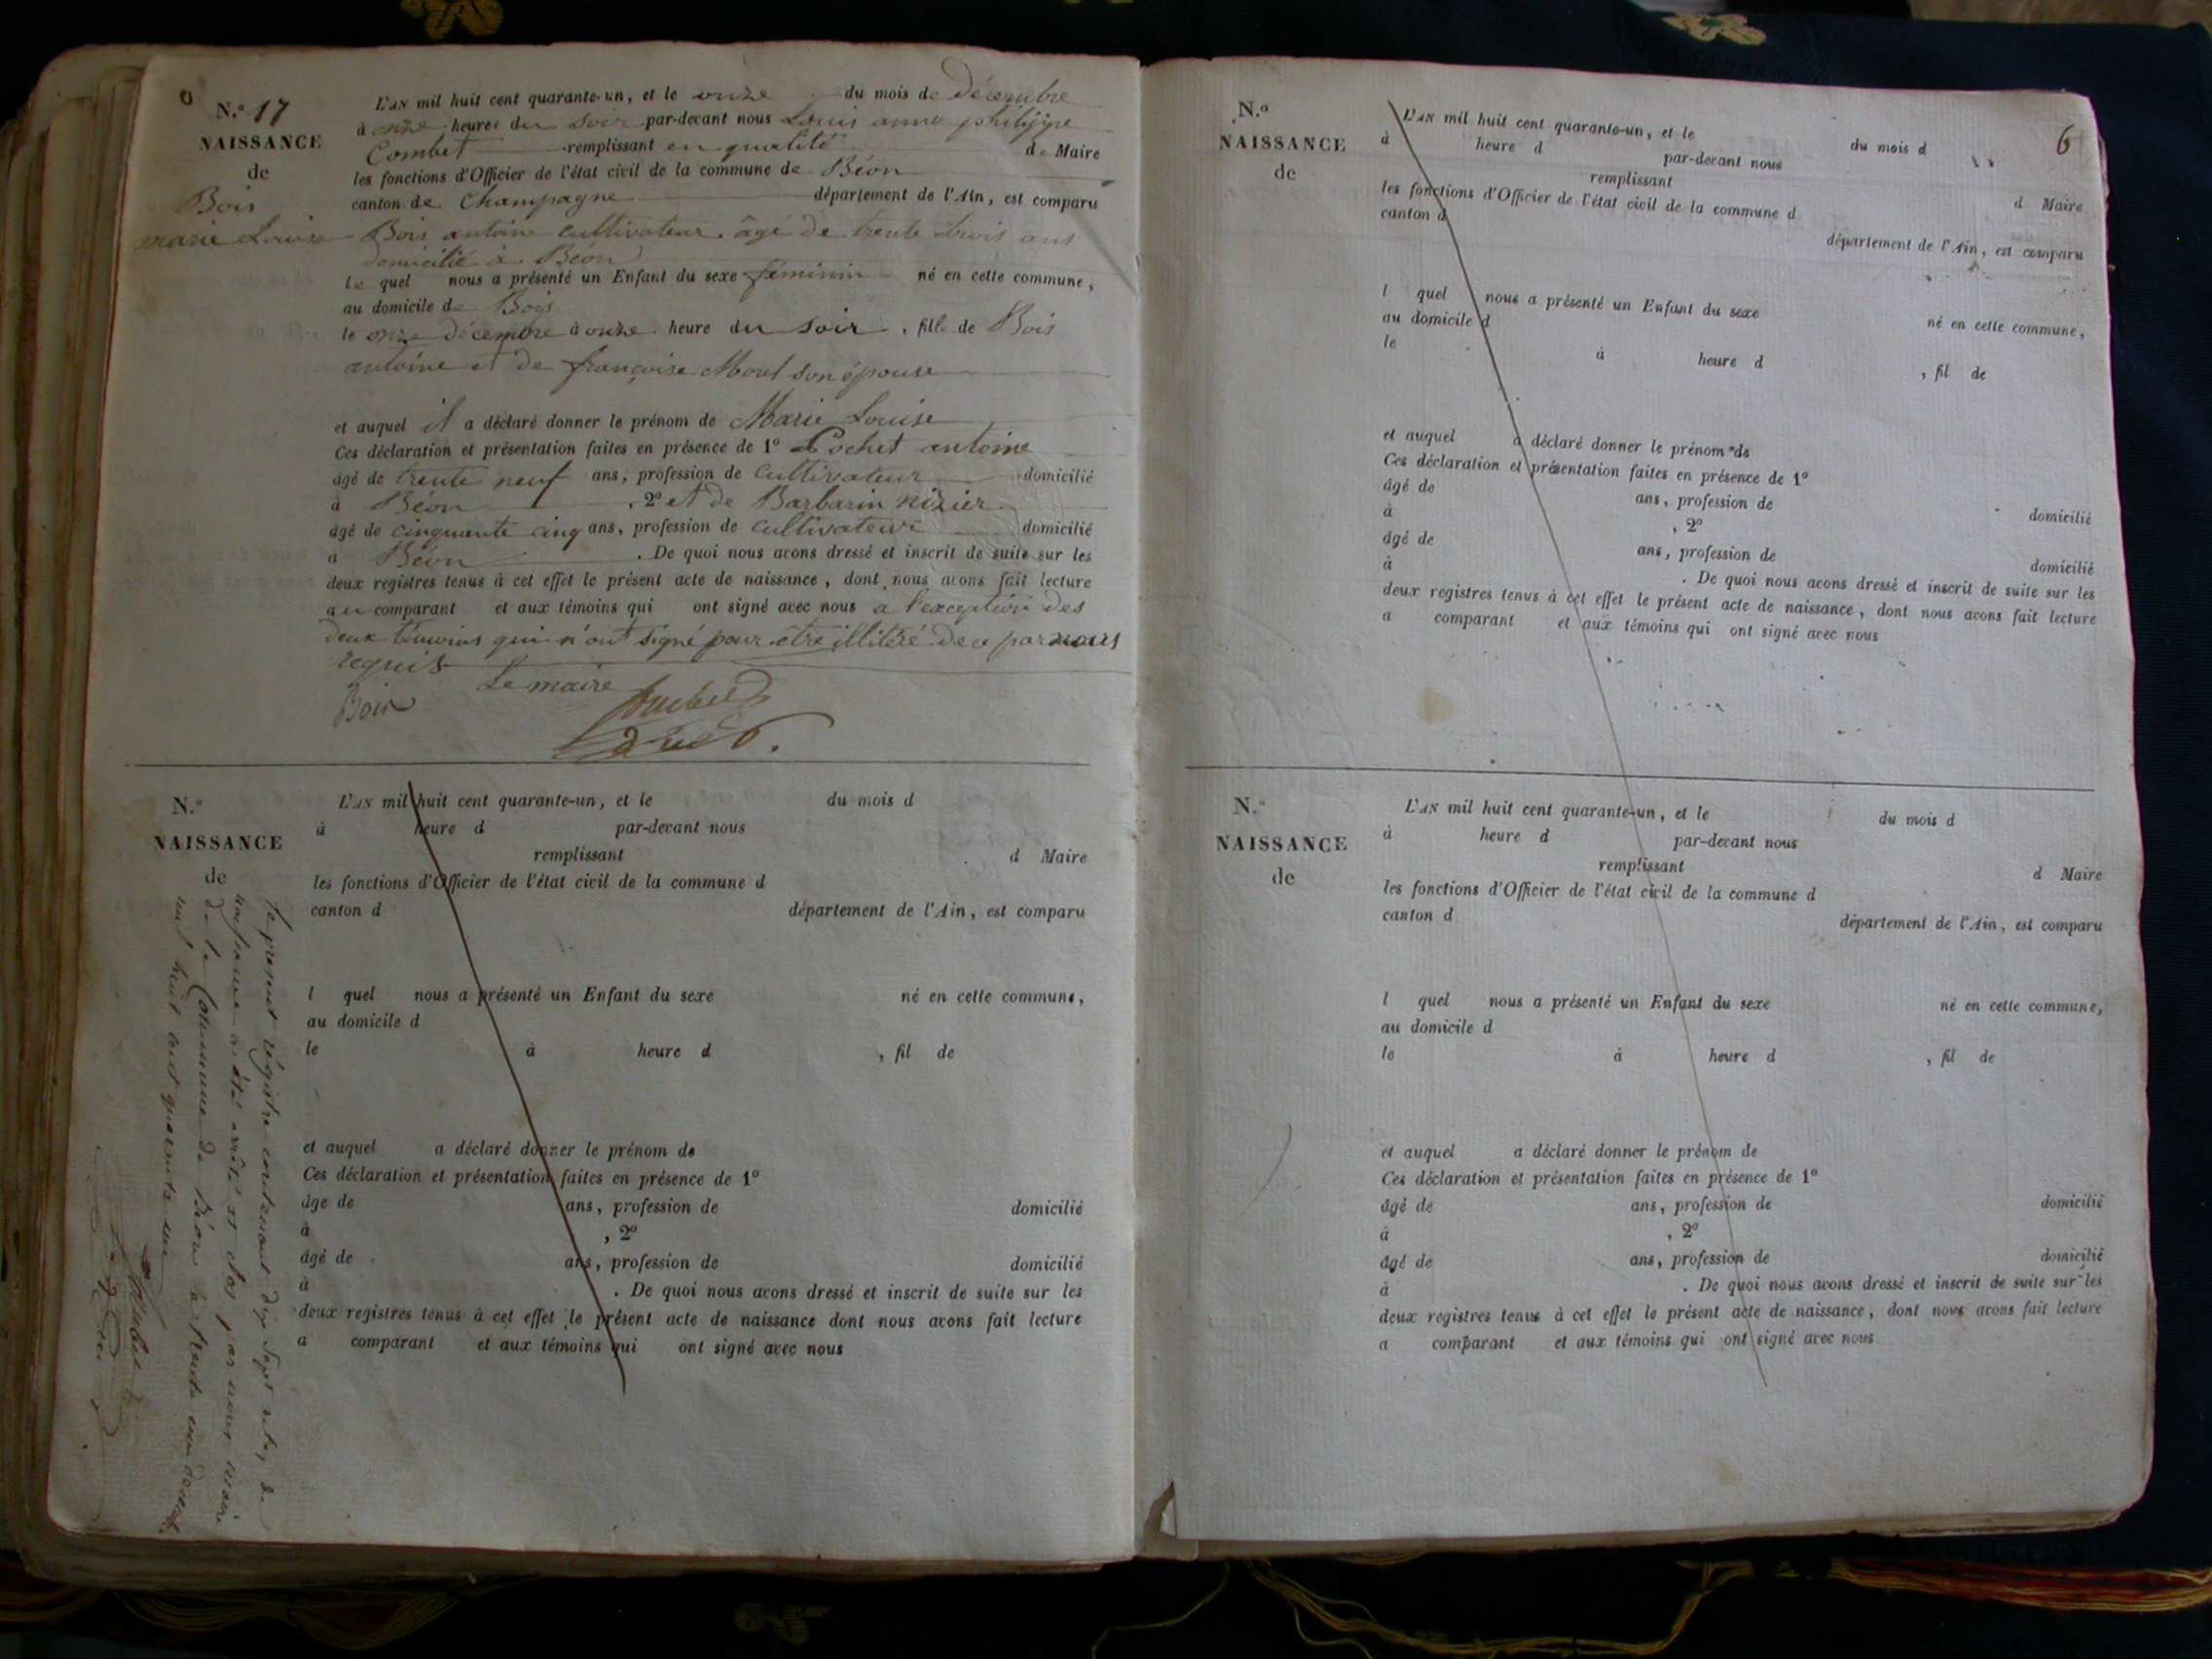 N.° 17
NAISSANCE
de
Bois
marie Louise
L'AN mil huit cent quarante-un, et le onze du mois de décembre
à onze heures du soir par-devant nous Louis anne philippe
Combet remplissant en qualité de Maire
les fonctions d'Officier de l'état civil de la commune de Béon
canton de Champagne département de l'Ain, est comparu
Bois antoine cultivateur. âgé de trente trois ans
domicilié à Béon
le quel nous a présenté un Enfant du sexe féminin né en cette commune,
au domicile de Bois
le onze décembre à onze heure du soir, fille de Bois
antoine et de françoise Morel son épouse
et auquel il a déclaré donner le prénom de Marie Louise
Ces déclaration et présentation faites en présence de 1° Pochet antoine
âgé de trente neuf ans, profession de cultivateur domicilié
à Béon, 2° et de Barbarin nizier
âgé de cinquante cinq ans, profession de cultivateur domicilié
à Béon. De quoi nous avons dressé et inscrit de suite sur les
deux registres tenus à cet effet le présent acte de naissance, dont nous avons fait lecture
au comparant et aux témoins qui ont signé avec nous a l'exception des
deux témoins qui n'ont signé pour être illitéré de ce par nous
requis
Bois Le maire
N.°
NAISSANCE
de
L'AN mil huit cent quarante-un, et le du mois d
à heure d par-devant nous
remplissant d Maire
les fonctions d'Officier de l'état civil de la commune d
canton d département de l'Ain, est comparu
l quel nous a présenté un Enfant du sexe né en cette commune,
au domicile d
le à heure d , fil de
et auquel a déclaré donner le prénom de
Ces déclaration et présentation faites en présence de 1°
âge de ans, profession de domicilié
à , 2°
âgé de ans, profession de domicilié
à . De quoi nous avons dressé et inscrit de suite sur les
deux registres tenus à cet effet le présent acte de naissance dont nous avons fait lecture
a comparant et aux témoins qui ont signé avec nous
Le present régistre contenant dix sept actes de
naissance a été arrêté et clos par nous maire
de la Commune de Béon le trente un décembre
mil huit cent quarante un
6
N.°
NAISSANCE
de
L'AN mil huit cent quarante-un, et le du mois d
à heure d par-devant nous
remplissant d Maire
les fonctions d'Officier de l'état civil de la commune d
canton d département de l'Ain, est comparu
l quel nous a présenté un Enfant du sexe né en cette commune,
au domicile d
le à heure d , fil de
et auquel a déclaré donner le prénom de
Ces déclaration et présentation faites en présence de 1°
âgé de ans, profession de domicilié
à , 2°
âgé de ans, profession de domicilié
à . De quoi nous avons dressé et inscrit de suite sur les
deux registres tenus à cet effet le présent acte de naissance, dont nous avons fait lecture
a comparant et aux témoins qui ont signé avec nous
N.°
NAISSANCE
de
L'AN mil huit cent quarante-un, et le du mois d
à heure d par-devant nous
remplissant d Maire
les fonctions d'Officier de l'état civil de la commune d
canton d département de l'Ain, est comparu
l quel nous a présenté un Enfant du sexe né en cette commune,
au domicile d
le à heure d , fil de
et auquel a déclaré donner le prénom de
Ces déclaration et présentation faites en présence de 1°
âgé de ans, profession de domicilié
à , 2°
âgé de ans, profession de domicilié
à . De quoi nous avons dressé et inscrit de suite sur les
deux registres tenus à cet effet le présent acte de naissance, dont nous avons fait lecture
a comparant et aux témoins qui ont signé avec nous